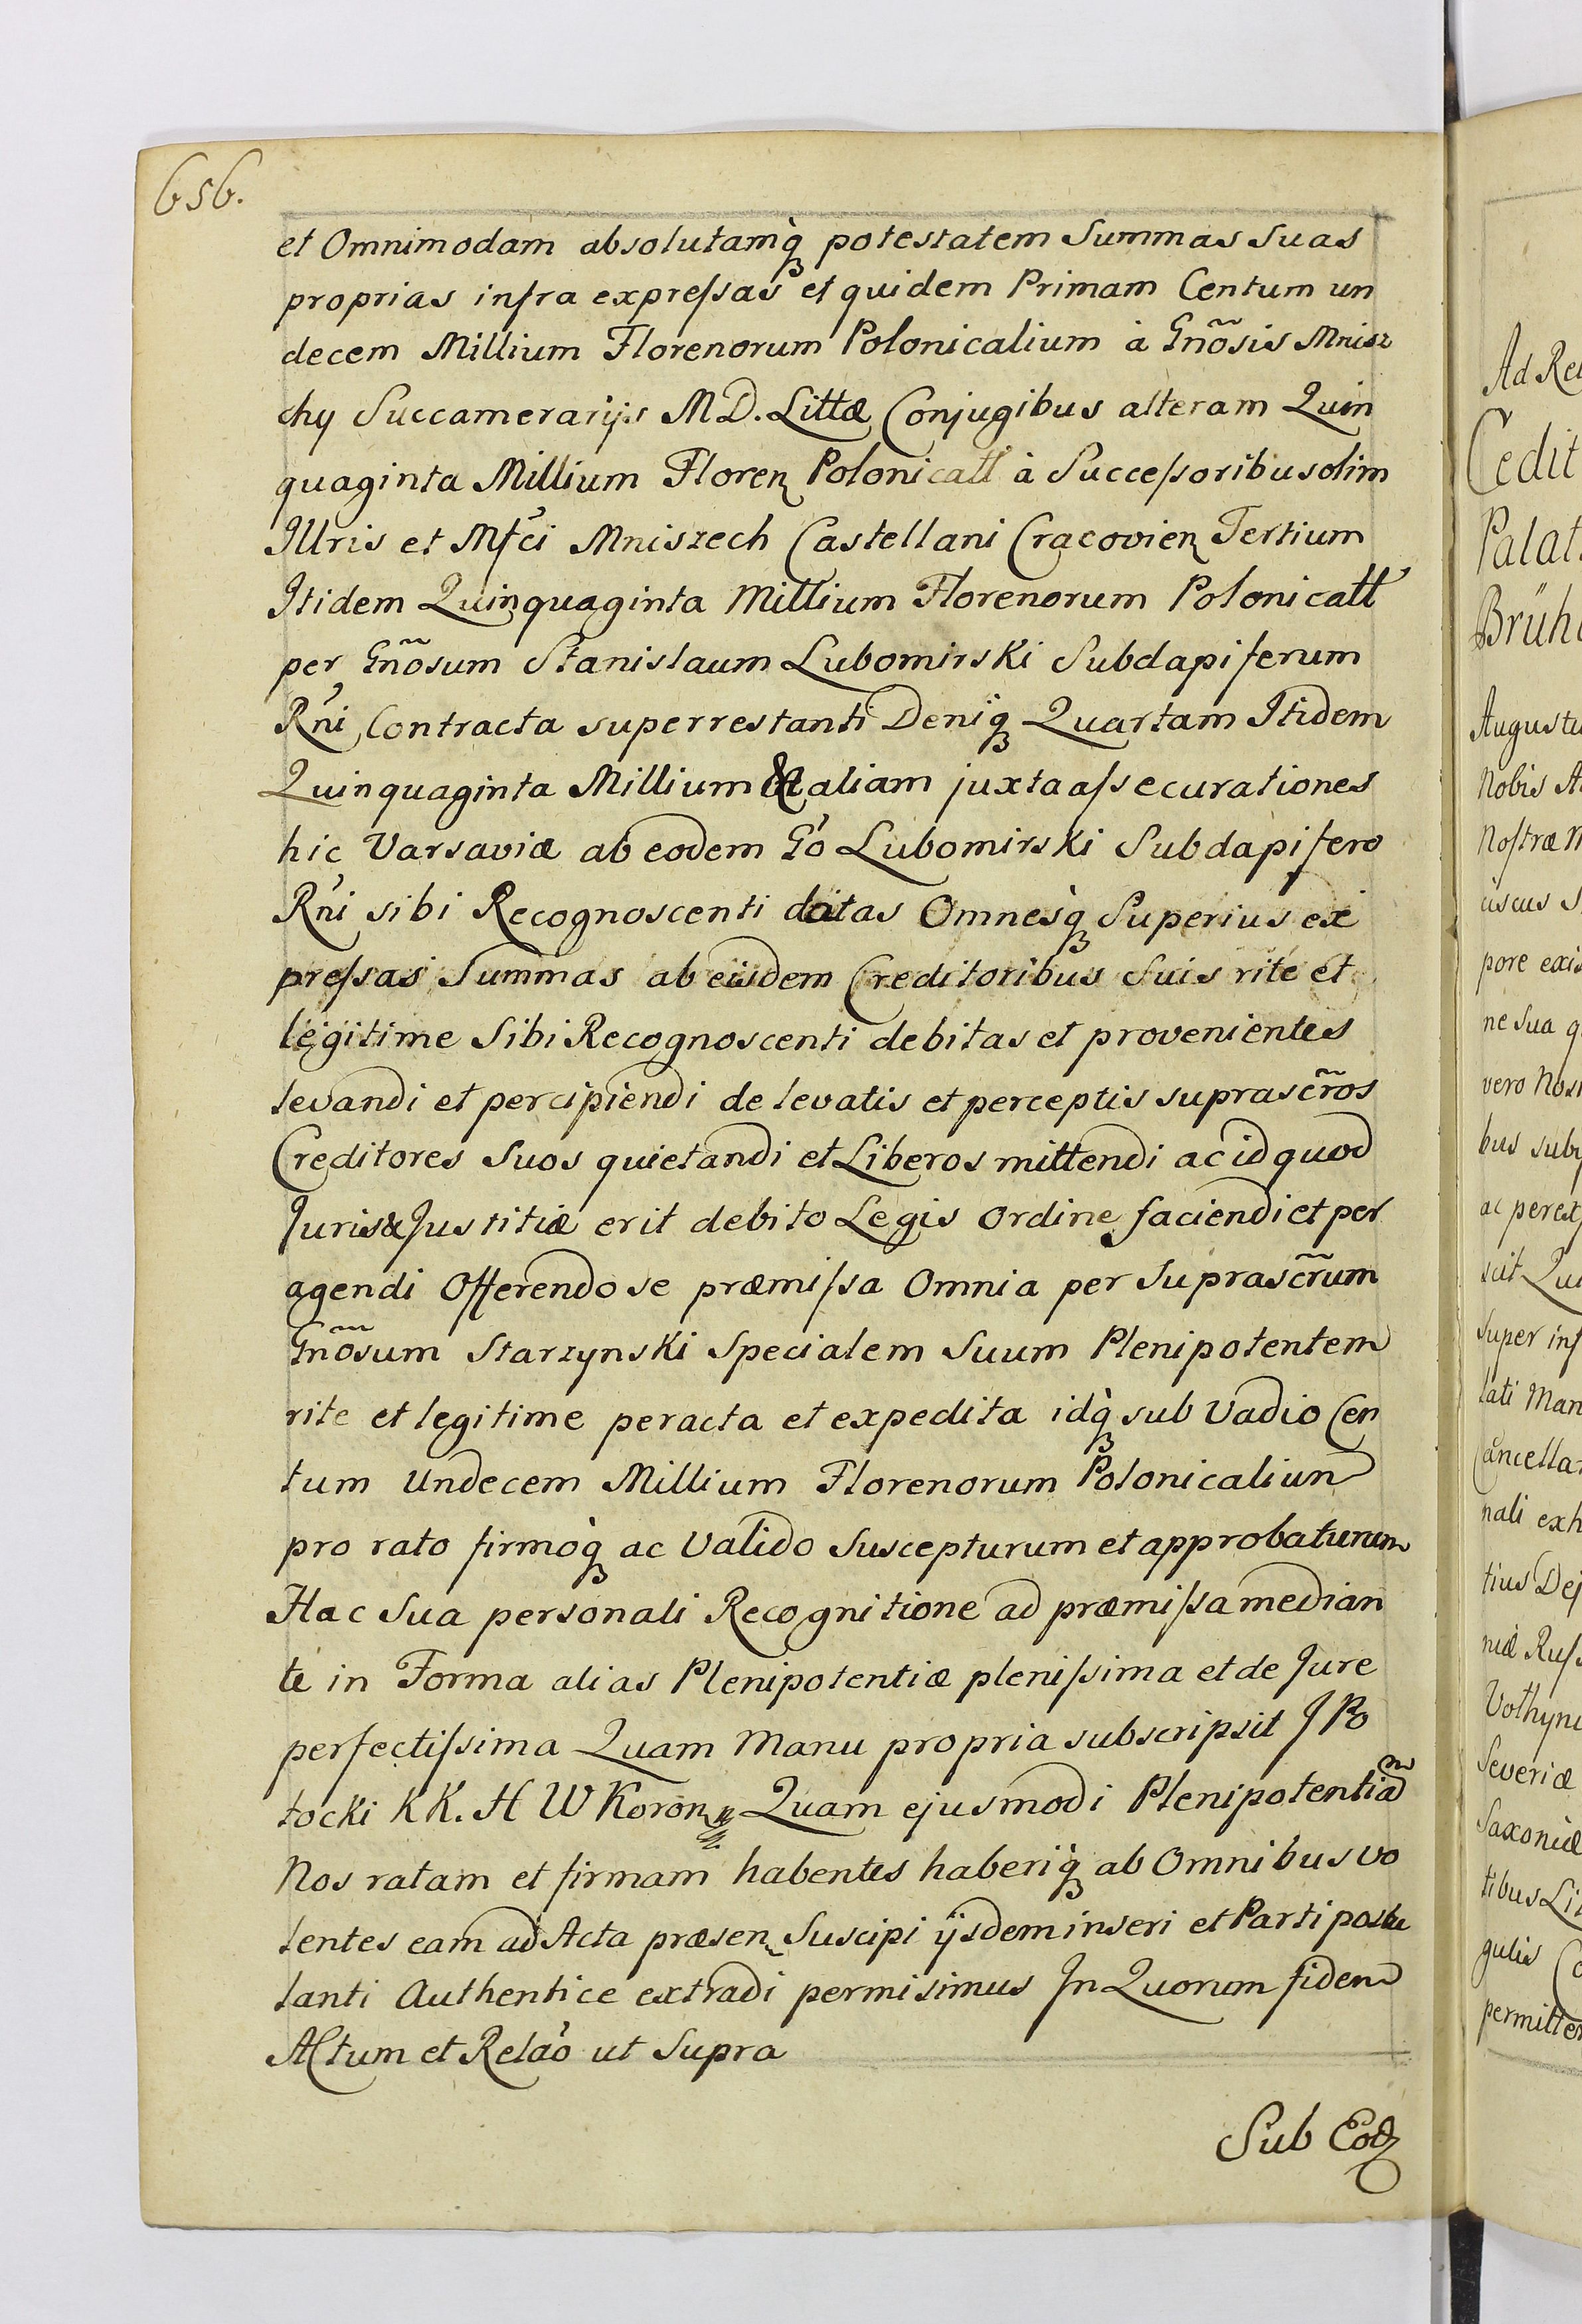 656.
et Omnimodam absolutamq̀ꝫ potestatem Summas Suas
proprias infra expreſsas et quidem Primam Centum un
decem Millium Florenorum Polonicalium à Gnõsis Mnisz
chy Succamerarijs M D. Littæ Conjugibus alteram Quin
quaginta Millium Floren Polonicall à Succeſsoribus olim
Illris et Mfci Mniszech Castellani Cracovien Tertium
Itidem Quinquaginta Millium Florenorum Polonicall
per Gnõsum Stanislaum Lubomirski Subdapiferum
Rni Contracta superrestanti Deniqꝫ Quartam Itidem
Quinquaginta Millium & aliam juxta aſsecurationes
hic Varsaviæ ab eodem Go Lubomirski Subdapifero
Rni sibi Recognoscenti datas Omnesq̀ꝫ Superius ex
preſsas Summas ab eisdem Creditoribus Suis rite et
legitime Sibi Recognoscenti debitas et provenientes
levandi et percipiendi de levatis et perceptis suprascr̃os
Creditores Suos quietandi et Liberos mittendi ac id quod
Juris & Justitiæ erit debito Legis Ordine faciendi et per
agendi Offerendo se præmiſsa Omnia per Suprascr̃um
Gnõsum Starzynski Specialem Suum Plenipotentem
rite et legitime peracta et expedita idq̀ꝫ sub Vadio Cen
tum Undecem Millium Florenorum Polonicalium
pro rato firmoq̀ꝫ ac Valido Suscepturum et approbaturum
Hac Sua personali Recognitione ad præmiſsa median
te in Forma alias Plenipotentiæ pleniſsima et de Jure
perfectiſsima Quam Manu propria subscripsit J Po
tocki KK. H W Koron Quam ejusmodi Plenipotentiam̃
Nos ratam et firmam habentes haberiq̀ꝫ ab Omnibus vo
lentes eam ad Acta præsen Suscipi ijsdem inseri et Parti postu
lanti Authentice extradi permisimus In Quorum fidem
Actum et Relao ut Supra
Sub Eod
Ad Re
Cedit
Palat
Brüh
Augustu
Nobis A
Noſtræ
pore exis
ne Sua q
vero Nos
bus sub
ac per
Super inf
lati Man
Cancella
nali exh
tius Dej
niæ Ruſs
Volhyni
Severiæ
Saxoniæ
tibus Li
gulis
permitte